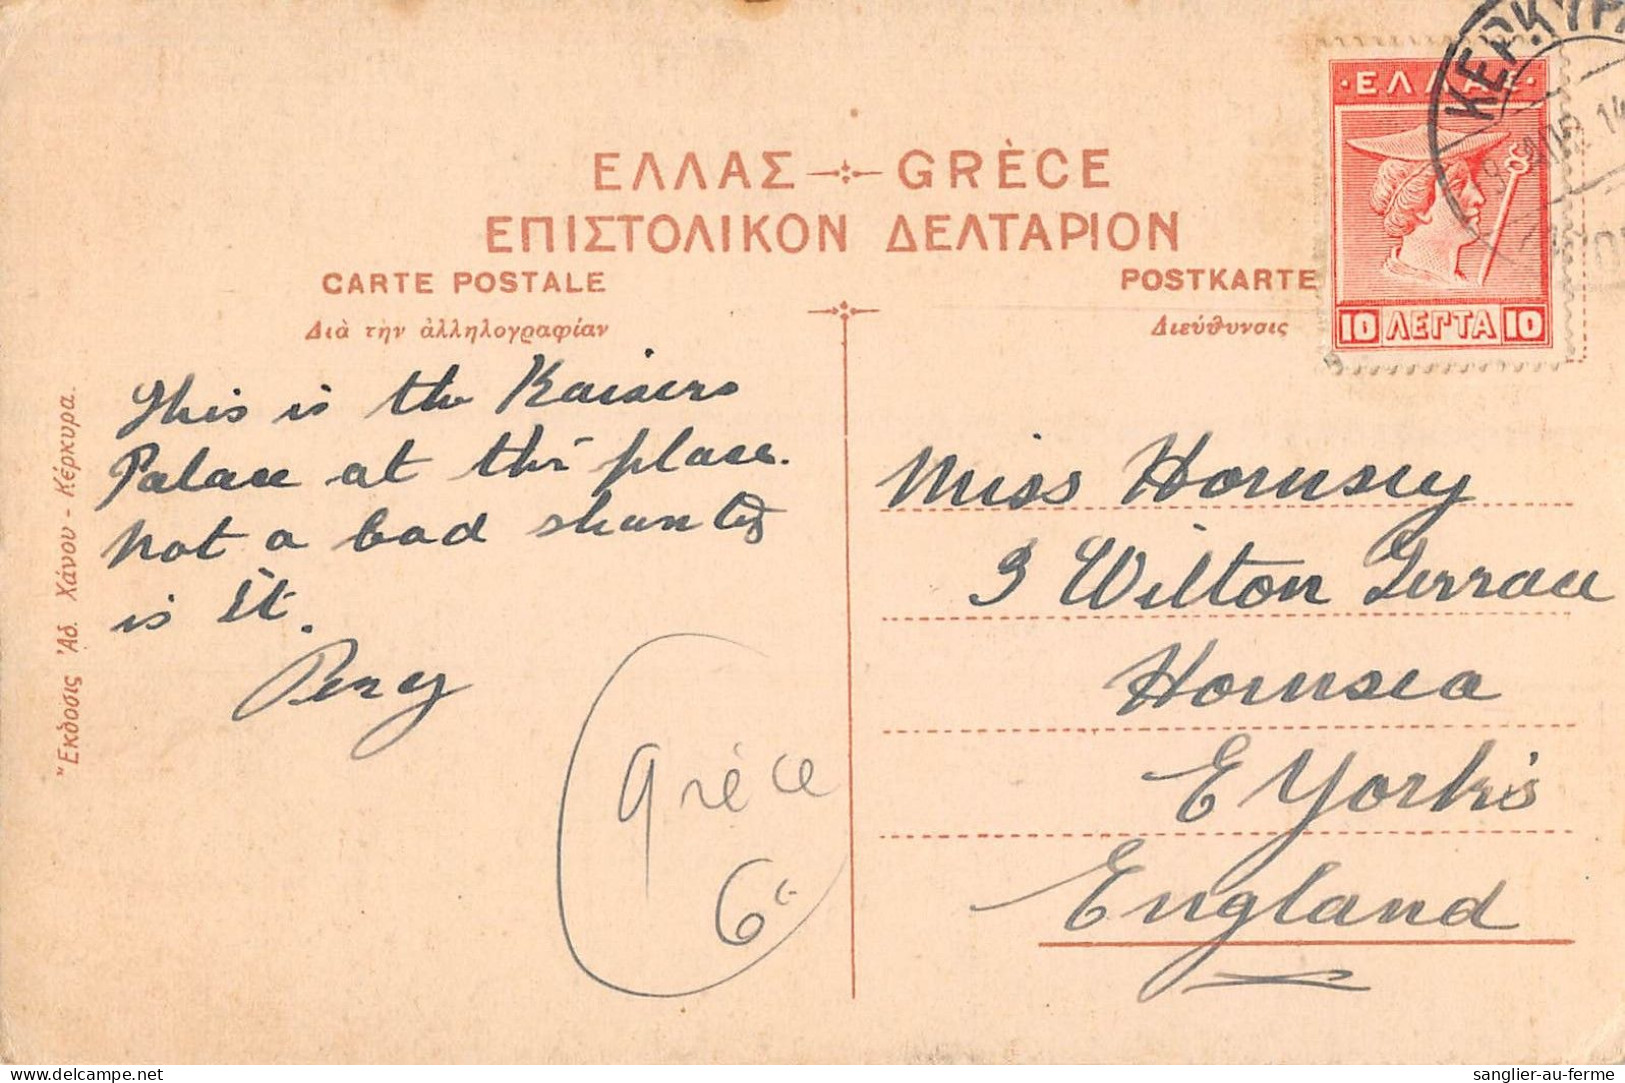 ΕΛΛΑΣ GRÈCE
ΕΠΙΣΤΟΛΙΚΟΝ ΔΕΛΤΑΡΙΟΝ
CARTE POSTALE
POSTKARTE
Διὰ τὴν ἀλληλογραφίαν
Διεύθυνσις
·ΕΛΛΑΣ·
10 ΛΕΠΤΑ 10
ΚΕΡΚΥΡΑ
This is the Kaisers
Palace at this place.
not a bad shanty
is it.
Percy
Miss Hornsey
3 Wilton Terrace
Hornsea
E Yorks
England
Grèce
6€
"Εκδοσις Ἀδ. Χάνου - Κέρκυρα.
sanglier-au-ferme